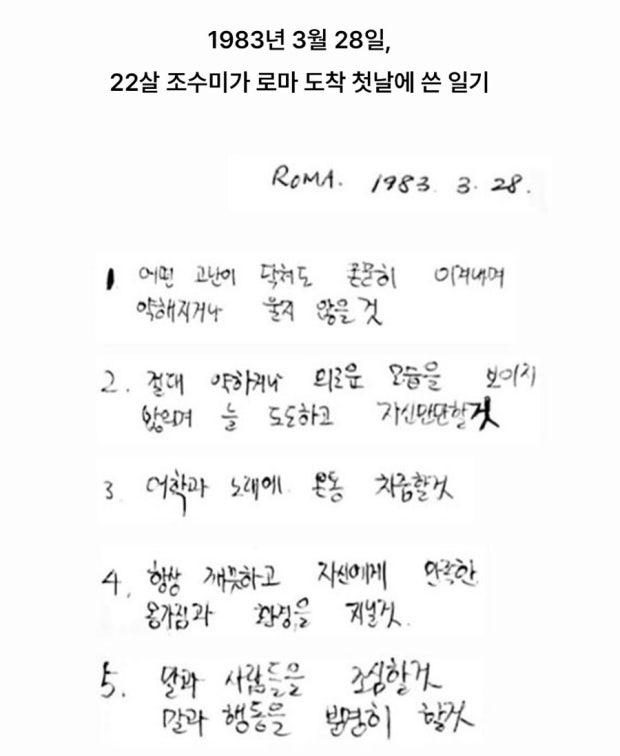 1983년 3월 28일,
22살 조수미가 로마 도착 첫날에 쓴 일기
ROMA. 1983. 3. 28.
1 어떤 고난이 닥쳐도 꿋꿋히 이겨내며
약해지거나 울지 않을 것
2. 절대 약하거나 외로운 모습을 보이지
않으며 늘 도도하고 자신만만할것
3. 어학과 노래에 온통 치중할것
4. 항상 깨끗하고 자신에게 만족한
몸가짐과 환경을 지닐것.
5. 말과 사람들을 조심할것
말과 행동을 분명히 할것